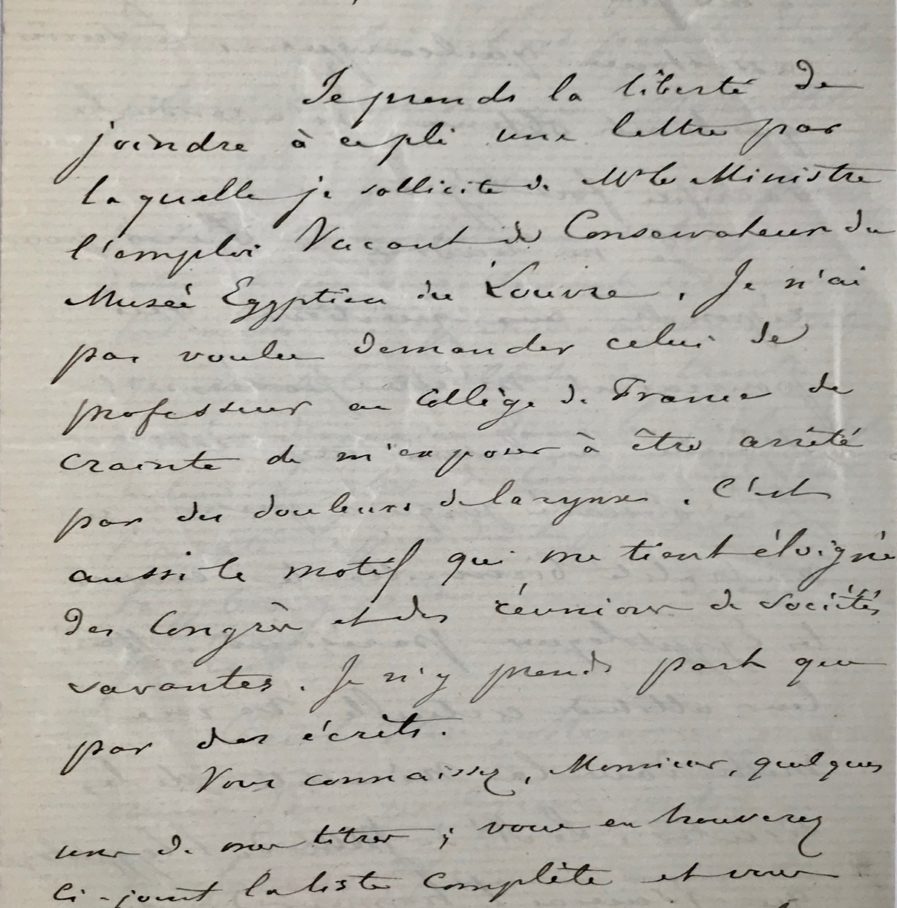 Je prends la liberté de
joindre à ce pli une lettre par
laquelle je sollicite de Mr le Ministre
l'emploi Vacant de Conservateur du
Musée Egyptien du Louvre. Je n'ai
pas voulu demander celui de
professeur au Collège de France de
crainte de m'exposer à être arrêté
par des douleurs de larynx. C'est
aussi le motif qui me tient éloigné
des Congrès et des réunions de Sociétés
savantes. Je n'y prends part que
par des écrits.
Vous connaissez, Monsieur, quelques
uns de mes titres ; vous en trouverez
ci-joint la liste complète et vous